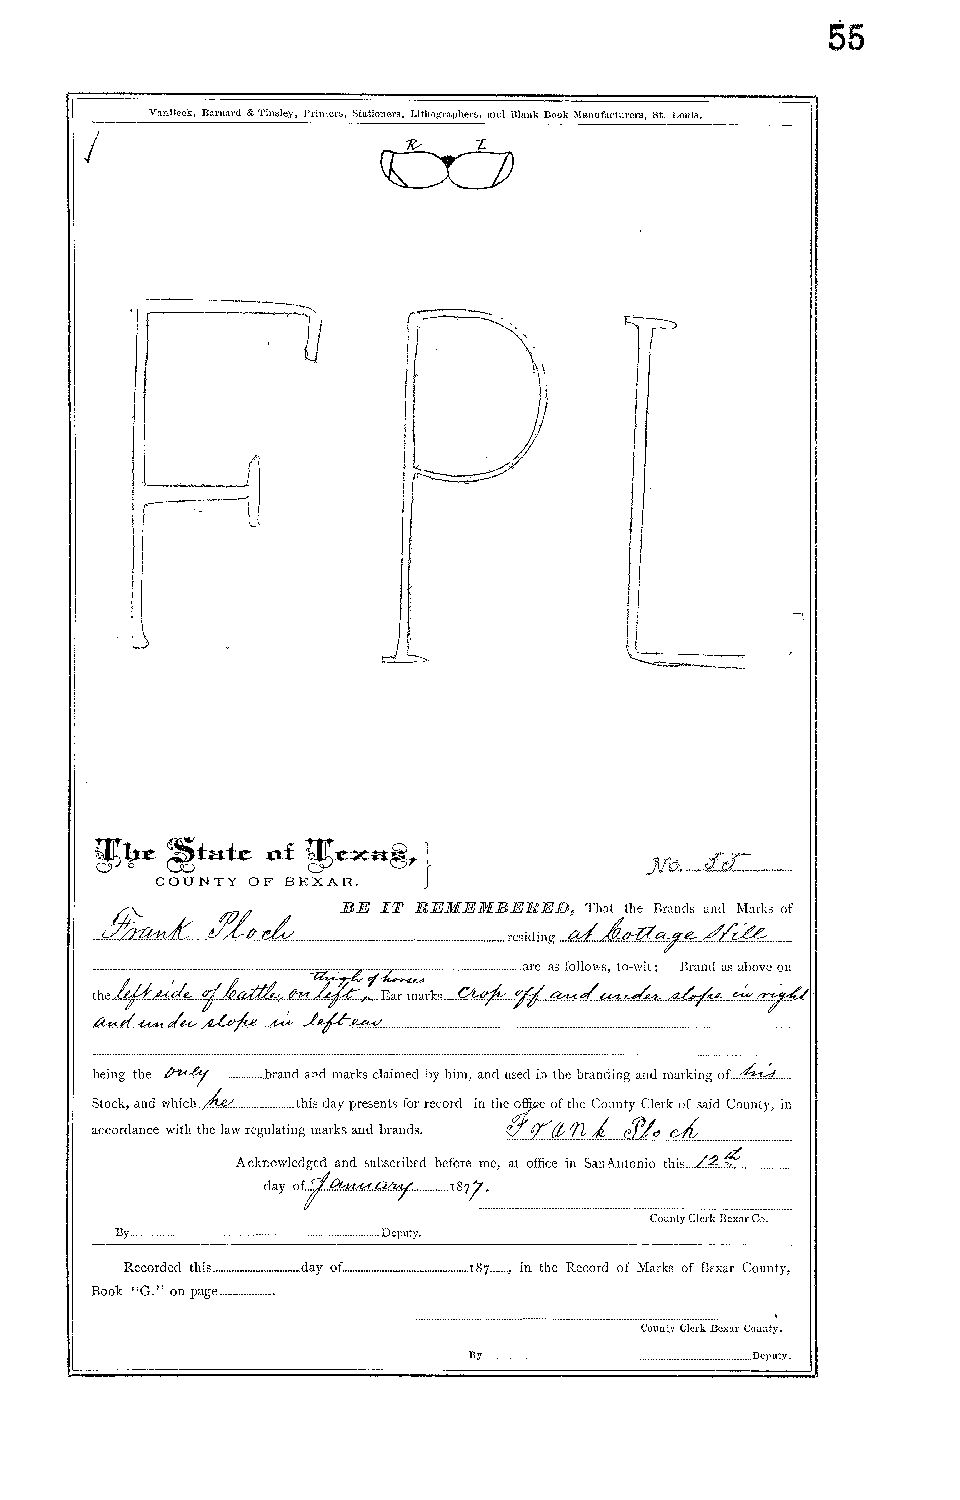 55
VanBeek, Barnard & Tinsley, Printers, Stationers, Lithographers, and Blank Book Manufacturers, St. Louis.
R L
F P L
The State of Texas,
COUNTY OF BEXAR.
No. 55
BE IT REMEMBERED, That the Brands and Marks of
Frank Ploch residing at Cottage Hill
are as follows, to-wit: Brand as above on
thigh of horses
the left side of Cattle on left, Ear marks crop off and under slope in right
and under slope in left ear
being the only brand and marks claimed by him, and used in the branding and marking of his
Stock, and which he this day presents for record in the office of the County Clerk of said County, in
accordance with the law regulating marks and brands. Frank Ploch
Acknowledged and subscribed before me, at office in San Antonio this 12th
day of January 1877.
County Clerk Bexar Co.
By Deputy.
Recorded this day of 187 , in the Record of Marks of Bexar County,
Book "G." on page
County Clerk Bexar County.
By Deputy.